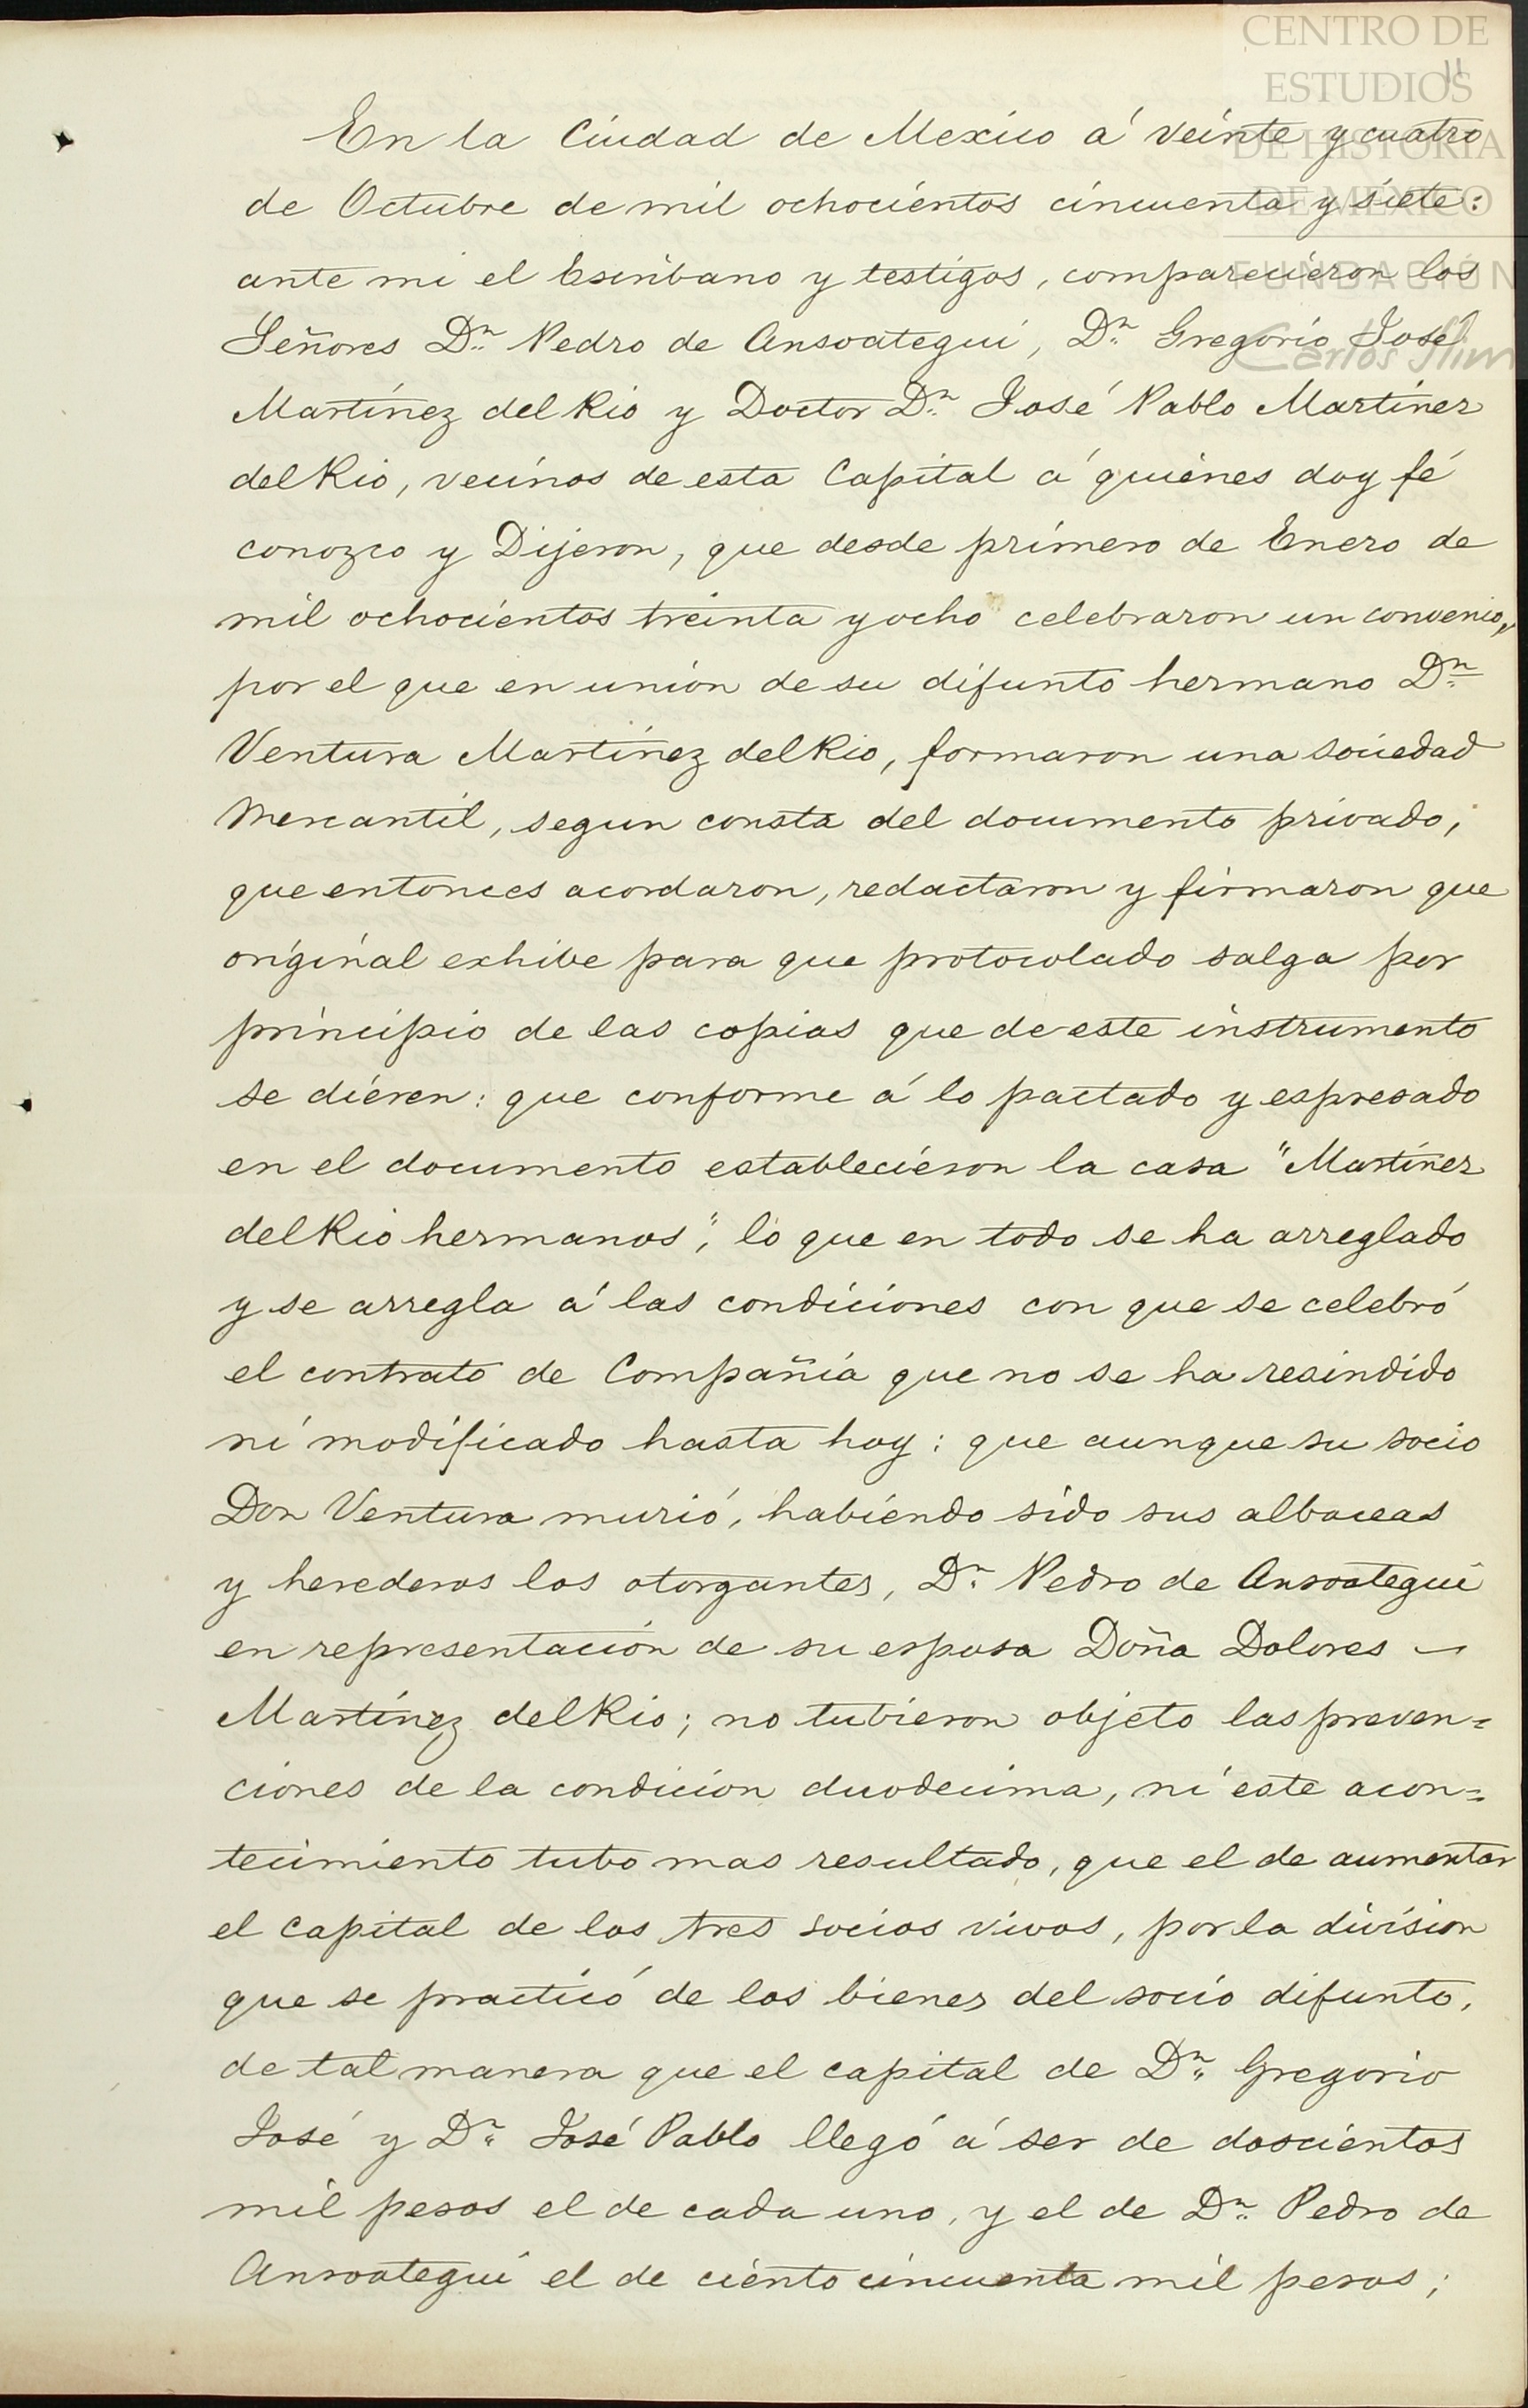 CENTRO DE
ESTUDIOS
DE HISTORIA
DE MÉXICO
FUNDACIÓN
Carlos Slim
11
En la Ciudad de Mexico á veinte y cuatro
de Octubre de mil ochocientos cincuenta y siete:
ante mi el Escribano y testigos, comparecieron los
Señores Dn. Pedro de Ansoategui, Dn. Gregorio José
Martinez del Rio y Doctor Dn. José Pablo Martinez
del Rio, vecinos de esta Capital á quienes doy fé
conozco y Dijeron, que desde primero de Enero de
mil ochocientos treinta y ocho celebraron un convenio,
por el que en union de su difunto hermano Dn.
Ventura Martinez del Rio, formaron una sociedad
Mercantil, segun consta del documento privado,
que entonces acordaron, redactaron y firmaron que
original exhibe para que protocolado salga por
principio de las copias que de este instrumento
se dieren: que conforme á lo pactado y espresado
en el documento establecieron la casa "Martinez
del Rio hermanos", lo que en todo se ha arreglado
y se arregla á las condiciones con que se celebró
el contrato de Compañia que no se ha resindido
ni modificado hasta hoy: que aunque su socio
Don Ventura murió, habiendo sido sus albaceas
y herederos los otorgantes, Dn. Pedro de Ansoategui
en representacion de su esposa Doña Dolores —
Martinez del Rio; no tubieron objeto las preven=
ciones de la condicion duodecima, ni este acon=
tecimiento tubo mas resultado, que el de aumentar
el Capital de los tres socios vivos, por la division
que se practicó de los bienes del socio difunto,
de tal manera que el capital de Dn. Gregorio
José y Dn. José Pablo llegó á ser de doscientos
mil pesos el de cada uno, y el de Dn. Pedro de
Ansoategui el de ciento cincuenta mil pesos;